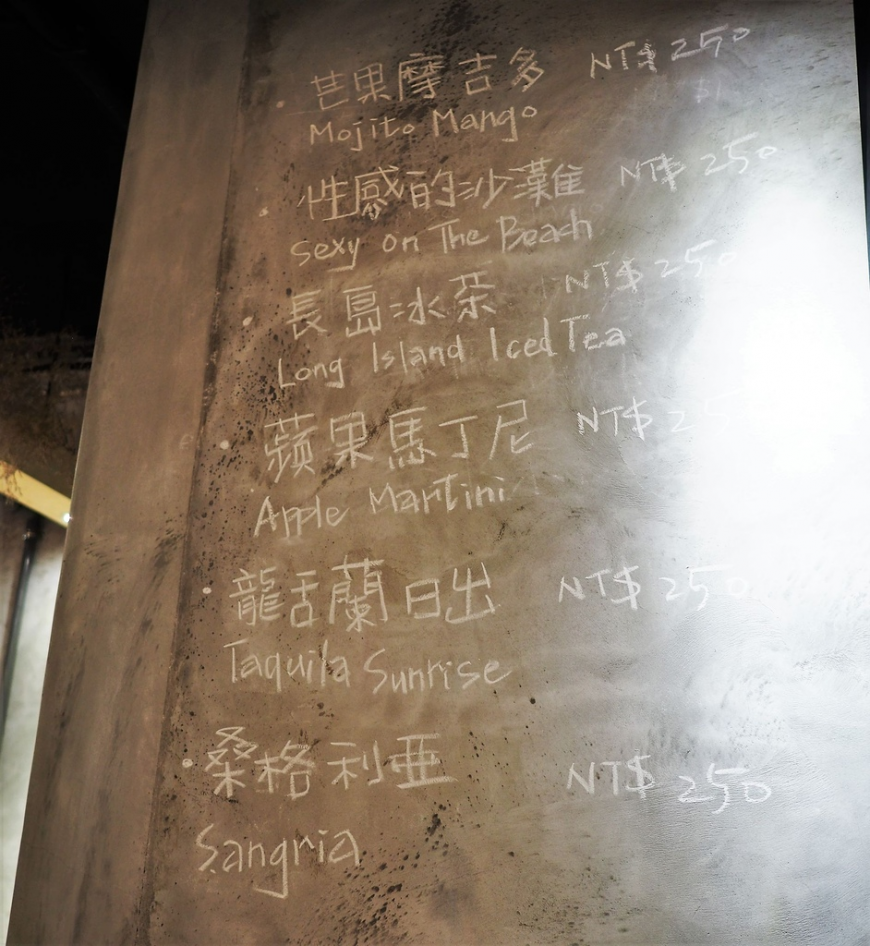 芒果摩吉多 NT$ 250
Mojito Mango
性感的沙灘 NT$ 250
Sexy On The Beach
長島冰茶 NT$ 250
Long Island Iced Tea
蘋果馬丁尼 NT$ 25
Apple Martini
龍舌蘭日出 NT$ 250
Taquila Sunrise
桑格利亞 NT$ 250
Sangria